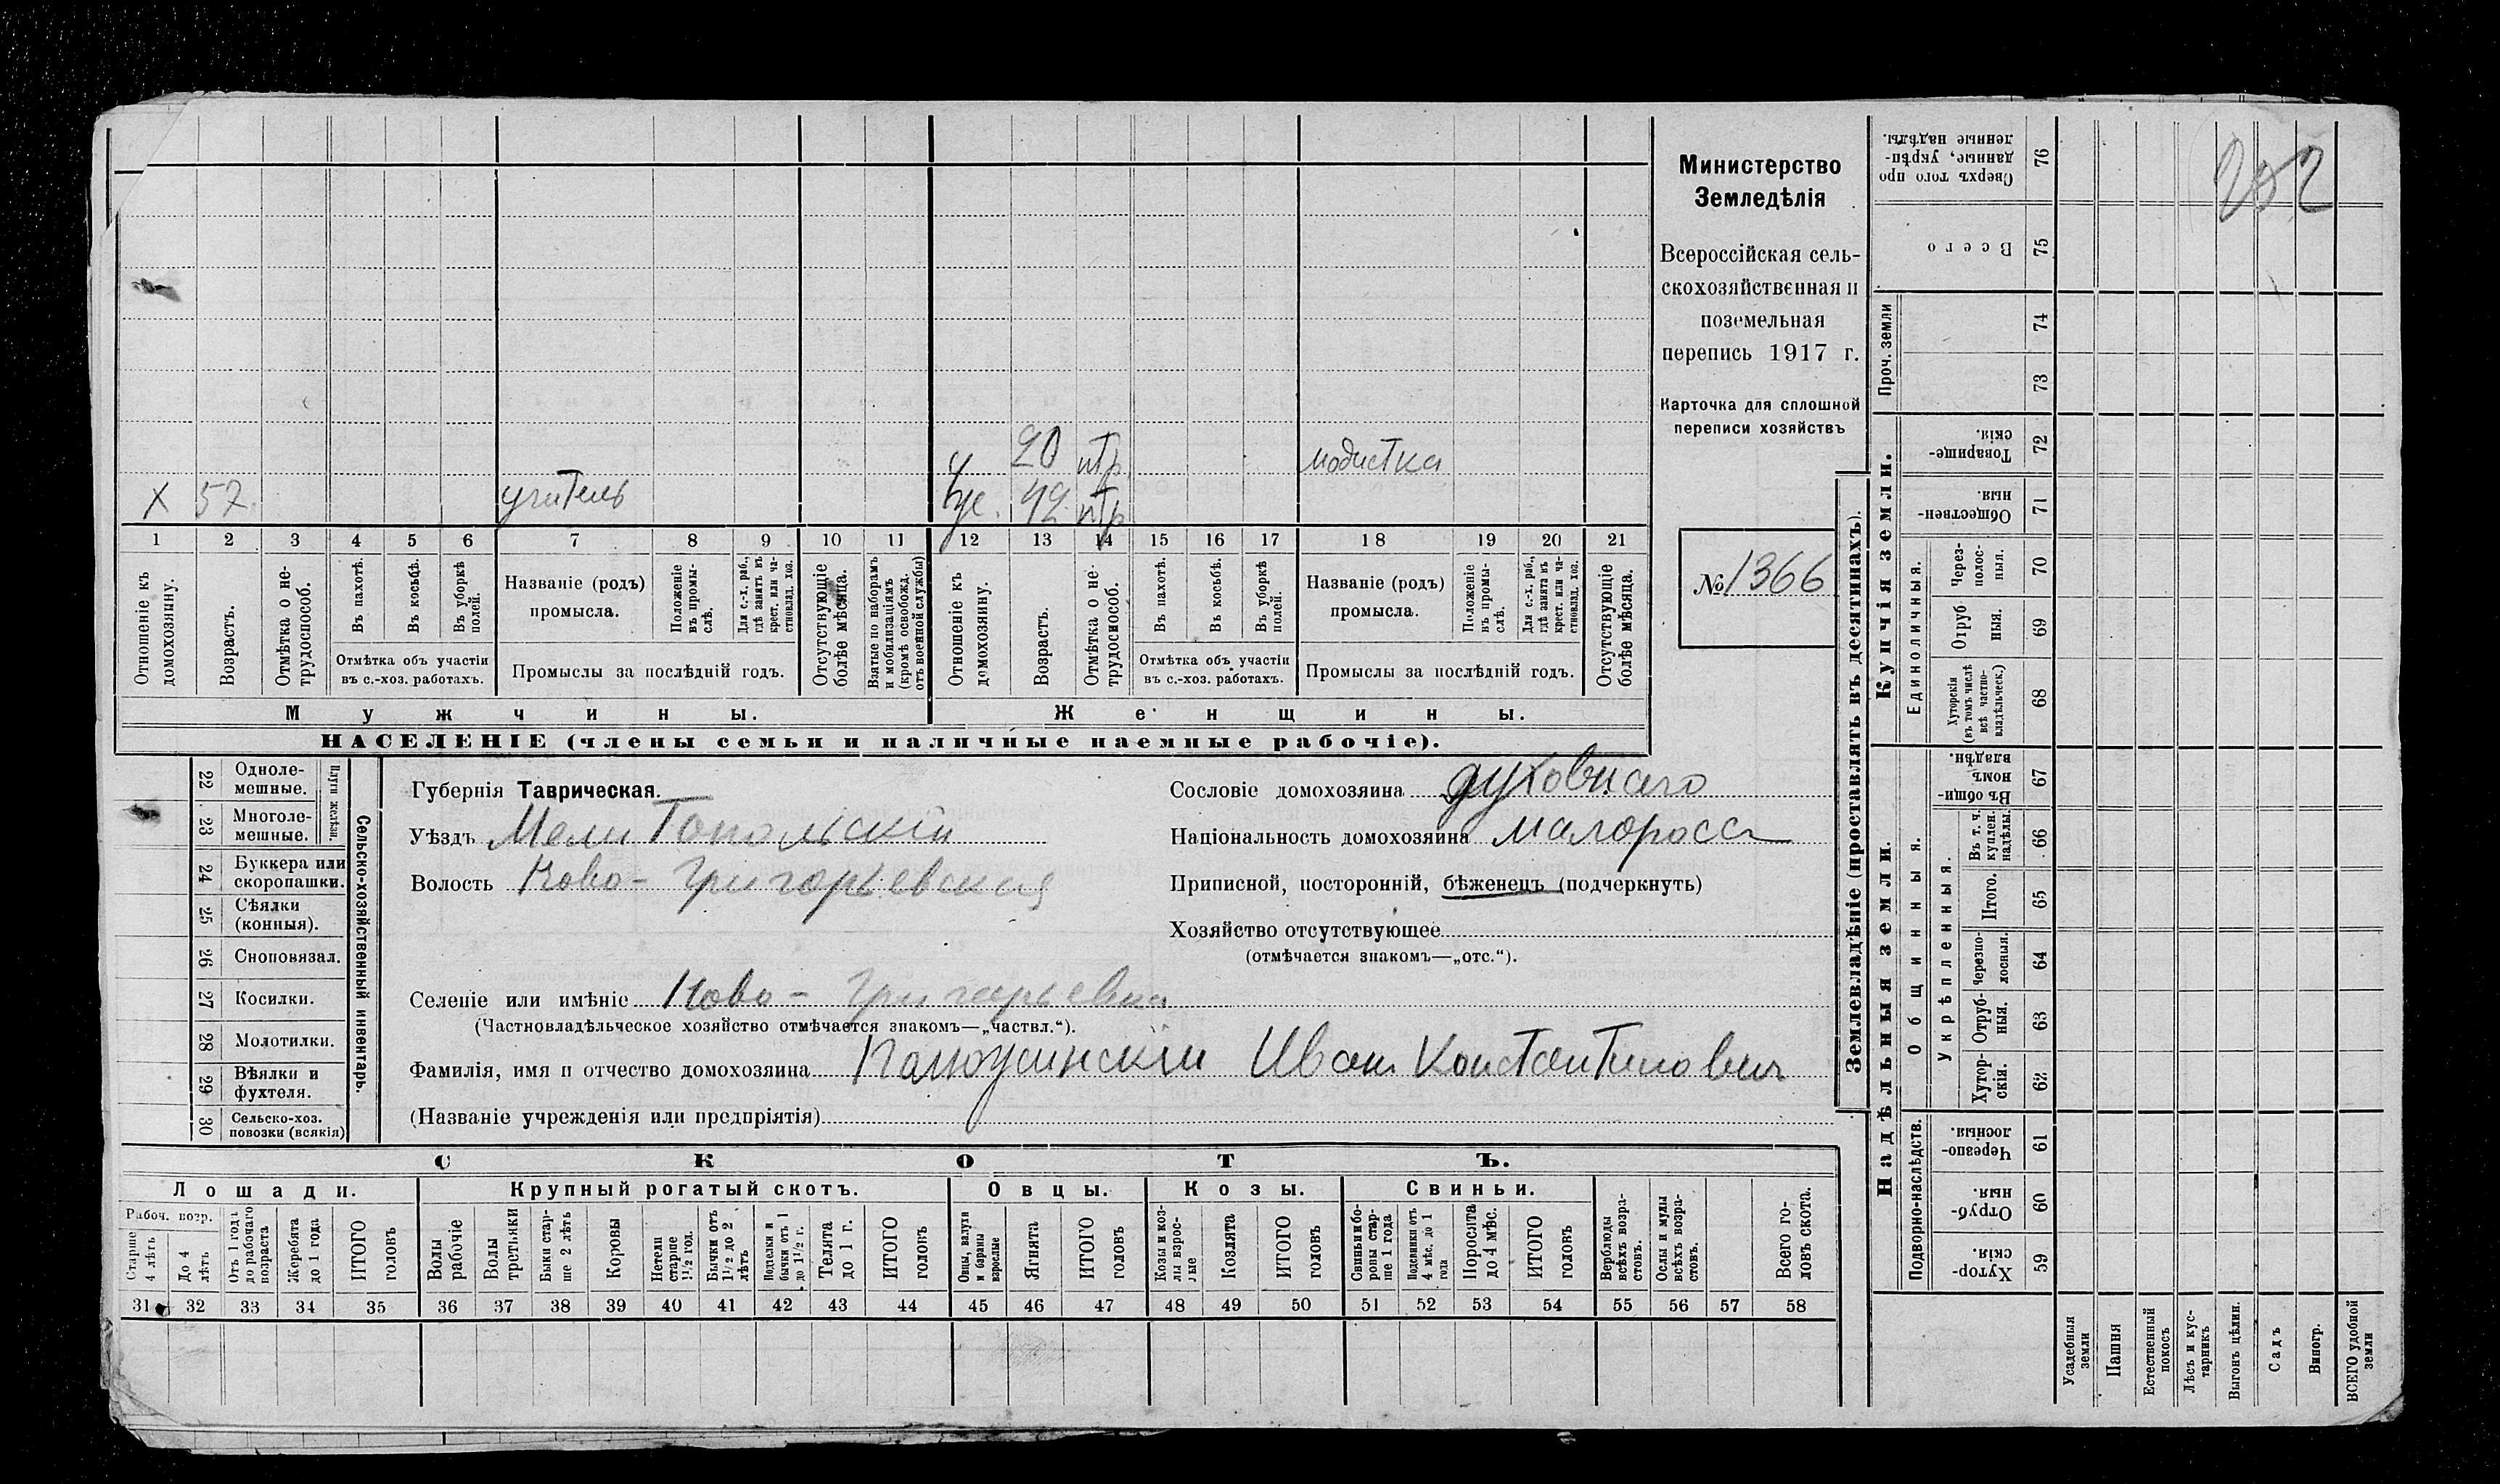 202
Министерство
Земледѣлія
Всероссійская сель-
скохозяйственная и
поземельная
перепись 1917 г.
Карточка для сплошной
переписи хозяйствъ
№ 1366
ч 20 нтр. модистка
X 57. учитель
же. 42 нтр
1 2 3 4 5 6 7 8 9 10 11 12 13 14 15 16 17 18 19 20 21
Отношеніе къ домохозяину.
Возрастъ.
Отмѣтка о не-трудоспособ.
Въ пахотѣ.
Въ косьбѣ.
Въ уборкѣ полей.
Отмѣтка объ участіи
въ с.-хоз. работахъ.
Названіе (родъ)
промысла.
Положеніе въ промы-слѣ.
Для с.-х. раб., гдѣ занятъ въ крест. или ча-стновлад. хоз.
Промыслы за послѣдній годъ.
Отсутствующіе болѣе мѣсяца.
Взятые по наборамъ и мобилизаціямъ (кромѣ освобожд. отъ военной службы)
Отношеніе къ домохозяину.
Возрастъ.
Отмѣтка о не-трудоспособ.
Въ пахотѣ.
Въ косьбѣ.
Въ уборкѣ полей.
Отмѣтка объ участіи
въ с.-хоз. работахъ.
Названіе (родъ)
промысла.
Положеніе въ промы-слѣ.
Для с.-х. раб., гдѣ занята въ крест. или ча-стновлад. хоз.
Промыслы за послѣдній годъ.
Отсутствующіе болѣе мѣсяца.
Мужчины.
Женщины.
НАСЕЛЕНІЕ (члены семьи и наличные наемные рабочіе).
22 Одноле-мешные.
23 Многоле-мешные.
Плуги желѣзн.
24 Буккера или скоропашки.
25 Сѣялки (конныя).
26 Сноповязал.
27 Косилки.
28 Молотилки.
29 Вѣялки и фухтеля.
30 Сельско-хоз. повозки (всякія)
Сельско-хозяйственный инвентарь.
Губернія Таврическая.
Уѣздъ Мелитопольскій
Волость Ново-Григорьевская
Сословіе домохозяина духовнаго
Національность домохозяина малоросс
Приписной, посторонній, бѣженецъ (подчеркнуть)
Хозяйство отсутствующее
(отмѣчается знакомъ—„отс.“).
Селеніе или имѣніе Ново-Григорьевка
(Частновладѣльческое хозяйство отмѣчается знакомъ—„частвл.“).
Фамилія, имя и отчество домохозяина Иван Константинович
(Названіе учрежденія или предпріятія)
СКОТЪ.
Лошади.
Крупный рогатый скотъ.
Овцы.
Козы.
Свиньи.
Рабоч. возр.
Старше 4 лѣтъ
До 4 лѣтъ
Отъ 1 года до рабочаго возраста
Жеребята до 1 года
ИТОГО головъ
Волы рабочіе
Волы третьяки
Быки стар-ше 2 лѣтъ
Коровы
Нетели старше 1½ год.
Бычки отъ 1½ до 2 лѣтъ
Подтелки и бычки отъ 1 до 1½ г.
Телята до 1 г.
ИТОГО головъ
Овцы, валухи и бараны взрослые
Ягнята
ИТОГО головъ
Козы и коз-лы взрос-лые
Козлята
ИТОГО головъ
Свиньи и бо-ровы стар-ше 1 года
Подсвинки отъ 4 мѣс. до 1 года
Поросята до 4 мѣс.
ИТОГО головъ
Верблюды всѣхъ возра-стовъ.
Ослы и мулы всѣхъ возра-стовъ.
Всего го-ловъ скота.
31 32 33 34 35 36 37 38 39 40 41 42 43 44 45 46 47 48 49 50 51 52 53 54 55 56 57 58
Землевладѣніе (проставлять въ десятинахъ).
Купчія земли.
Надѣльныя земли.
Сверхъ того про-данные, укрѣп-ленные надѣлы. 76
Всего 75
Проч. земли 74
73
Товарище-скія. 72
Обществен-ныя. 71
Единоличныя.
Через-полос-ныя. 70
Отруб-ныя. 69
Хуторскія (въ томъ числѣ всѣ частно-владѣльческ.) 68
Общинныя.
Въ общи-номъ владѣн. 67
Укрѣпленныя.
Въ т. ч. куплен. надѣлы. 66
Итого. 65
Черезпо-лосныя. 64
Отруб-ныя. 63
Хутор-скія. 62
Подворно-наслѣдств.
Черезпо-лосныя. 61
Отруб-ныя. 60
Хутор-скія. 59
Усадебныя земли
Пашня
Естественный покосъ
Лѣсъ и кус-тарникъ
Выгонъ цѣлин.
Садъ
Виногр.
ВСЕГО удобной земли